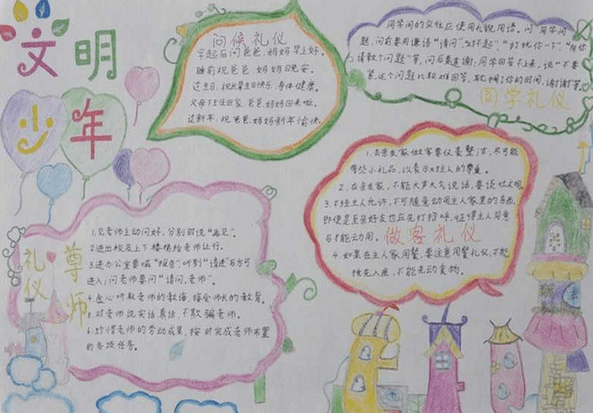 文明
少年
问候礼仪
早起后问爸爸、妈妈早上好。
睡前祝爸爸、妈妈晚安。
过生日,祝生日快乐、身体健康。
父母下班回家,爸爸、妈妈回来啦。
过新年,祝爸爸、妈妈新年愉快。
同学间的交往应使用礼貌用语。问同学问
题,前要用谦语"请问""对不起""打扰你一下""用你
请教个问题"等,问后要道谢,同学回答不上来,说"不要
紧,这个问题比较难回答,耽搁了你的时间,谢谢"等。
同学礼仪
1.去亲友家做客要仪表整洁,尽可能
带些小礼品,以表示对主人的尊重。
2.在亲友家,不能大声大气说话,要谈吐文明。
3.不经主人允许,不可随意动用主人家里的东西,
即使是至亲好友也应先打招呼,征得主人同意
后才能动用。
做客礼仪
4.如果在主人家用餐,要注意用餐礼仪,不能
抢先入座,不能先动食物。
尊师
礼仪
1.见老师主动问好,分别时说"再见"。
2.进出校及上下楼梯给老师让行。
3.进办公室要喊"报告",听到"请进"后方可
进入;问老师要问"请问,老师"。
4.虚心听取老师的教诲,接受师长的教育。
5.对老师说实话、真话,不欺骗老师。
6.珍惜老师的劳动成果,按时完成老师布置
的各项任务。